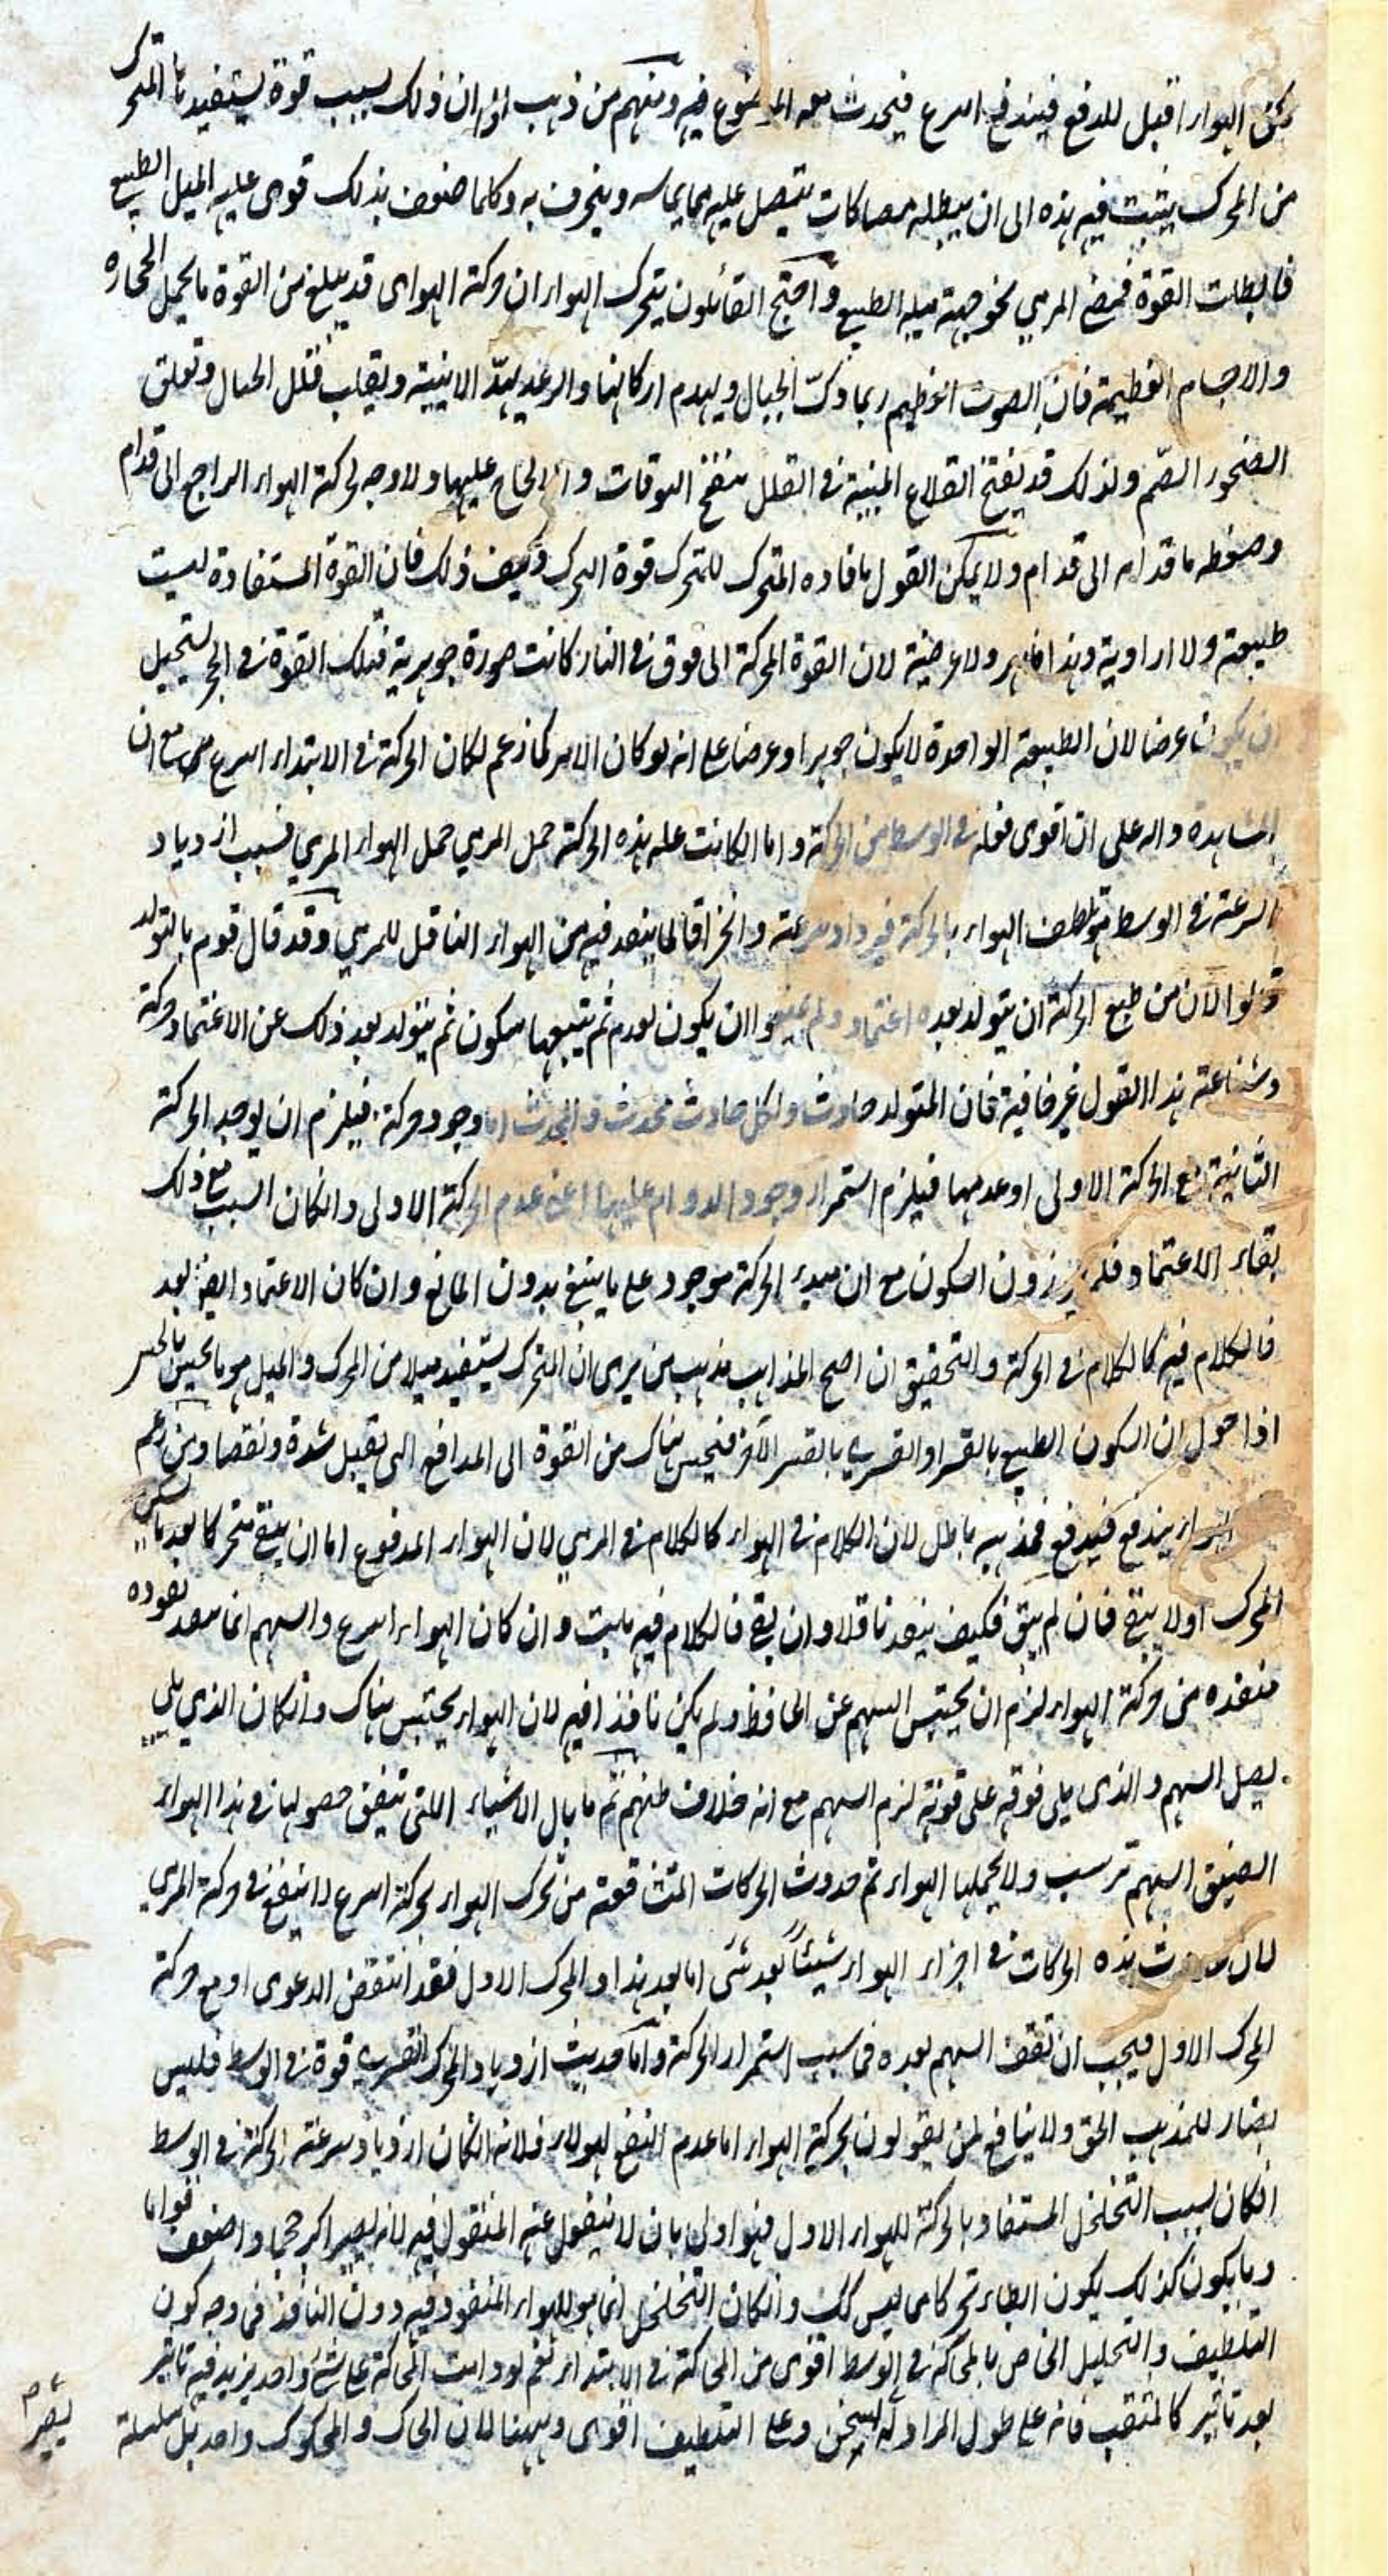 لكن الهواء اقبل للدفع فيندفع اسرع فيجذب معه الموضوع فيه ومنهم من ذهب الى ان ذلك بسبب قوة يستفيدها المتحرك
من المحرك يثبت فيه هذه الى ان يبطله مصاكات تتصل عليه مما يماسه وينخرق به وكلما ضعف بذلك قوى عليه الميل الطبيعي
فابطلت القوة فمضى المرمي نحو جهة ميله الطبيعي واحتج القائلون بتحرك الهواء ان حركة الهواء قد يبلغ من القوة ما يحمل الحجارة
والاجسام العظيمة فان الصوت العظيم ربما دكّ الجبال ويهدم اركانها والرعد يهدّ الابنية ويقلب قلل الجبال وتفلق
الصخور الصّم ولذلك قد يفتح القلاع المبنية في القلل بنفخ البوقات والالحاح عليها ولا وجه لحركة الهواء الراجع الى قدام
وضغطه ما قدامه الى قدام ولا يمكن القول بافاده المتحرك للمتحرك قوة التحرك وكيف ذلك فان القوة المستفادة ليست
طبيعية ولا ارادية وهذا ظاهر ولا عرضية لان القوة المحركة الى فوق في النار كانت صورة جوهرية فتلك القوة في الحجر يستحيل
ان يكون عرضا لان الطبيعة الواحدة لا يكون جوهرا وعرضا على انه لو كان الامر كما زعم لكان الحركة في الابتداء اسرع مع ان
المشاهدة دالة على ان اقوى فعله في الوسط من الحركة واما ان كانت علة هذه الحركة حمل المرمي حمل الهواء المرمي فسبب ازدياد
السرعة في الوسط تلطف الهواء بالحركة فيزداد سرعة وانخراقا لما ينفذ فيه من الهواء الناقل للمرمي وقد قال قوم بالتولد
قالوا لان من طبع الحركة ان يتولد بعده اعتماد ولم يمنعوا ان يكون لعدم ثم يتبعها سكون ثم يتولد بعد ذلك عن الاعتماد حركة
وشناعة هذا القول غير خافية فان المتولد حادث ولكل حادث محدث والمحدث اما وجود حركة فيلزم ان يوجد الحركة
الثانية مع الحركة الاولى او عدمها فيلزم استمرار وجود الدوام عليها اعني عدم الحركة الاولى وان كان السبب مع ذلك
بقاء الاعتماد فلم يرزون السكون مع ان مبدء الحركة موجود على ما ينبغي بدون المانع وان كان الاعتماد ايضا بعد
فالكلام فيه كالكلام في الحركة والتحقيق ان اصح المذاهب مذهب من يرى ان المتحرك يستفيد ميلا من المحرك والميل هو ما يحس بالحس
اذا حول ان السكون الطبيعي بالقسر او القسري بالقسر الآخر فيحس هناك من القوة الى المدافع التي تقبل شدة ونقصا ومن زعم
الهواء يندفع فيدفع فمذهبه باطل لان الكلام في الهواء كالكلام في المرمي لان الهواء المدفوع اما ان يبقى متحركا بعد ما سكن
المحرك او لا يبقى فان لم يبق فكيف ينفذ ناقلا وان بقي فالكلام فيه ثابت وان كان الهواء اسرع والسهم انما نفوذه
منفذه من حركة الهواء لزم ان يحتبس السهم عن الحافظ ولم يكن نافذا فيه لان الهواء يحتبس هناك وان كان الذي يلي
يصل السهم والذي يلي فوقه على قوته لزم السهم مع انه خلاف ظنهم ثم ما بال الاشياء اللتي تتفق حصولها في هذا الهواء
الضيق السهم ترسب ولا يحملها الهواء ثم حدوث الحركات المتشافعة من تحرك الهواء بحركة اسرع لا ينفع في حركة المرمي
لان حدوث هذه الحركات في اجزاء الهواء شيئاً بعد شئ اما بعد هذا والمحرك الاول فقد انتقض الدعوى او مع حركة
المحرك الاول فيجب ان تقف السهم بعده فى سبب استمرار الحركة واما حديث ازدياد المحرك القسري قوة في الوسط فليس
بضار للمذهب الحق ولا ينافع لمن يقولون بحركة الهواء اما عدم النفع لهولاء فلانه ان كان ازدياد سرعة الحركة في الوسط
ان كان لسبب التخلخل المستفاد بالحركة للهواء الاول فهو اولى بان لا ينفعل عنه المنقول فيه لانه يصير اكبر حجما واضعف قواما
وما يكون كذلك يكون ابطاء تحركا مما ليس كك وان كان التخلخل انما هو للهواء المنفوذ فيه دون النافذ فى وجه كون
التلطيف والتحليل الخاص بالمحاكة في الوسط اقوى من المحاكة في الابتداء نعم لو دامت المحاكة على شئ واحد يزيد فيه تاثير
بعد تاثير كالمثقب فانه على طول المراودة يسخن وعلى التلطيف اقوى وههنا للان الحاك والمحكوك واحد بل سلسلة